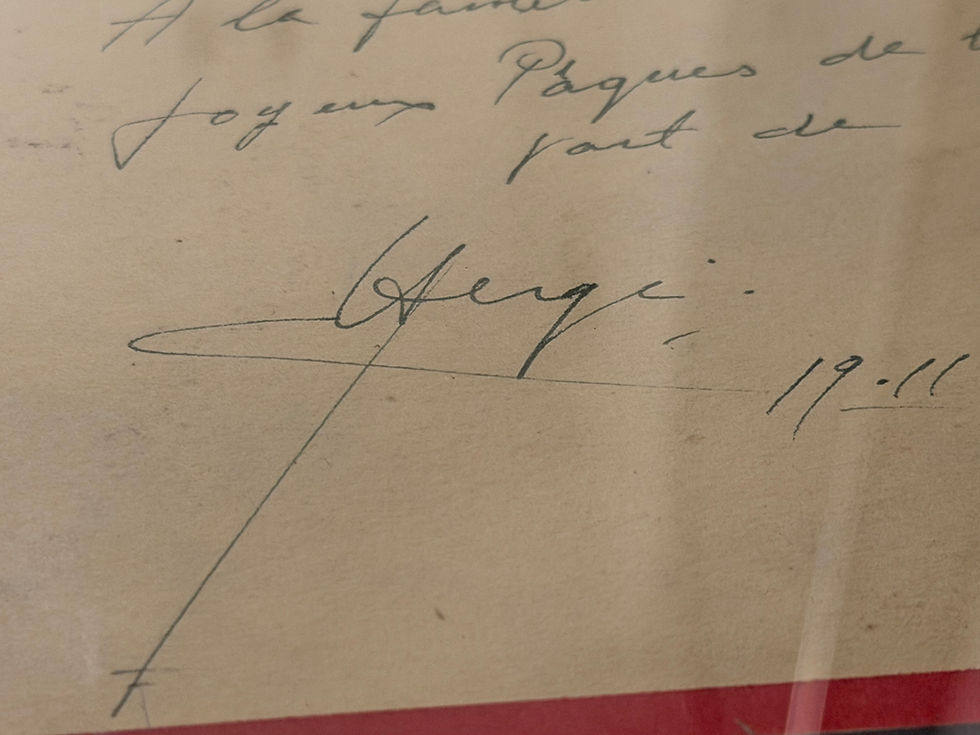 A la
Joyeux Pâques de
part de
Hergé.
19.11